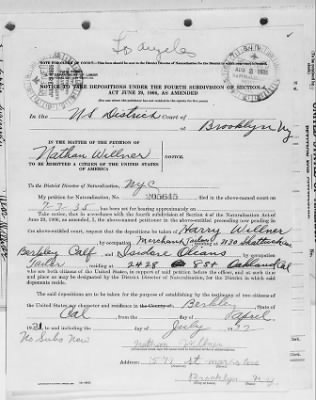 Los Angeles
NOTICE TO TAKE DEPOSITIONS UNDER THE FOURTH SUBDIVISION OF SECTION 4,
ACT JUNE 29, 1906, AS AMENDED
In the U S District Court of
at Brooklyn Ny
IN THE MATTER OF THE PETITION OF
Nathan Willner NOTICE.
TO BE ADMITTED A CITIZEN OF THE UNITED
STATES OF AMERICA
To the District Director of Naturalization, NYC
My petition for Naturalization, No. 205645 filed in the above-named court on
7-3-35, has been set for hearing approximately on
Take notice, that in accordance with said subdivision of section 4 of the Naturalization Act of
June 29, 1906, as amended, I, the above-named petitioner in the above-entitled proceeding now pending in the
above-entitled court, request that the depositions be taken of Harry Willner
by occupation, Merchant Tailor at 2130 Shattuck
Berkley Calf and Isidore Olcans by occupation
Tailor residing at 2428 8 St Oakland Cal
who are both citizens of the United States, in support of said petition before the officer, and at such time
and place as may be designated by the District Director of Naturalization, for the District in which said
deponents reside.
The said depositions are to be taken for the purpose of establishing by the testimony of two citizens of
the United States my character and residence in the County of Berkley, State of
Cal from the day of April
1921 to and including the day of July 1922
No Subs Now
Nathan Willner
Address: 1579 St Marks Ave
Brooklyn N.Y.